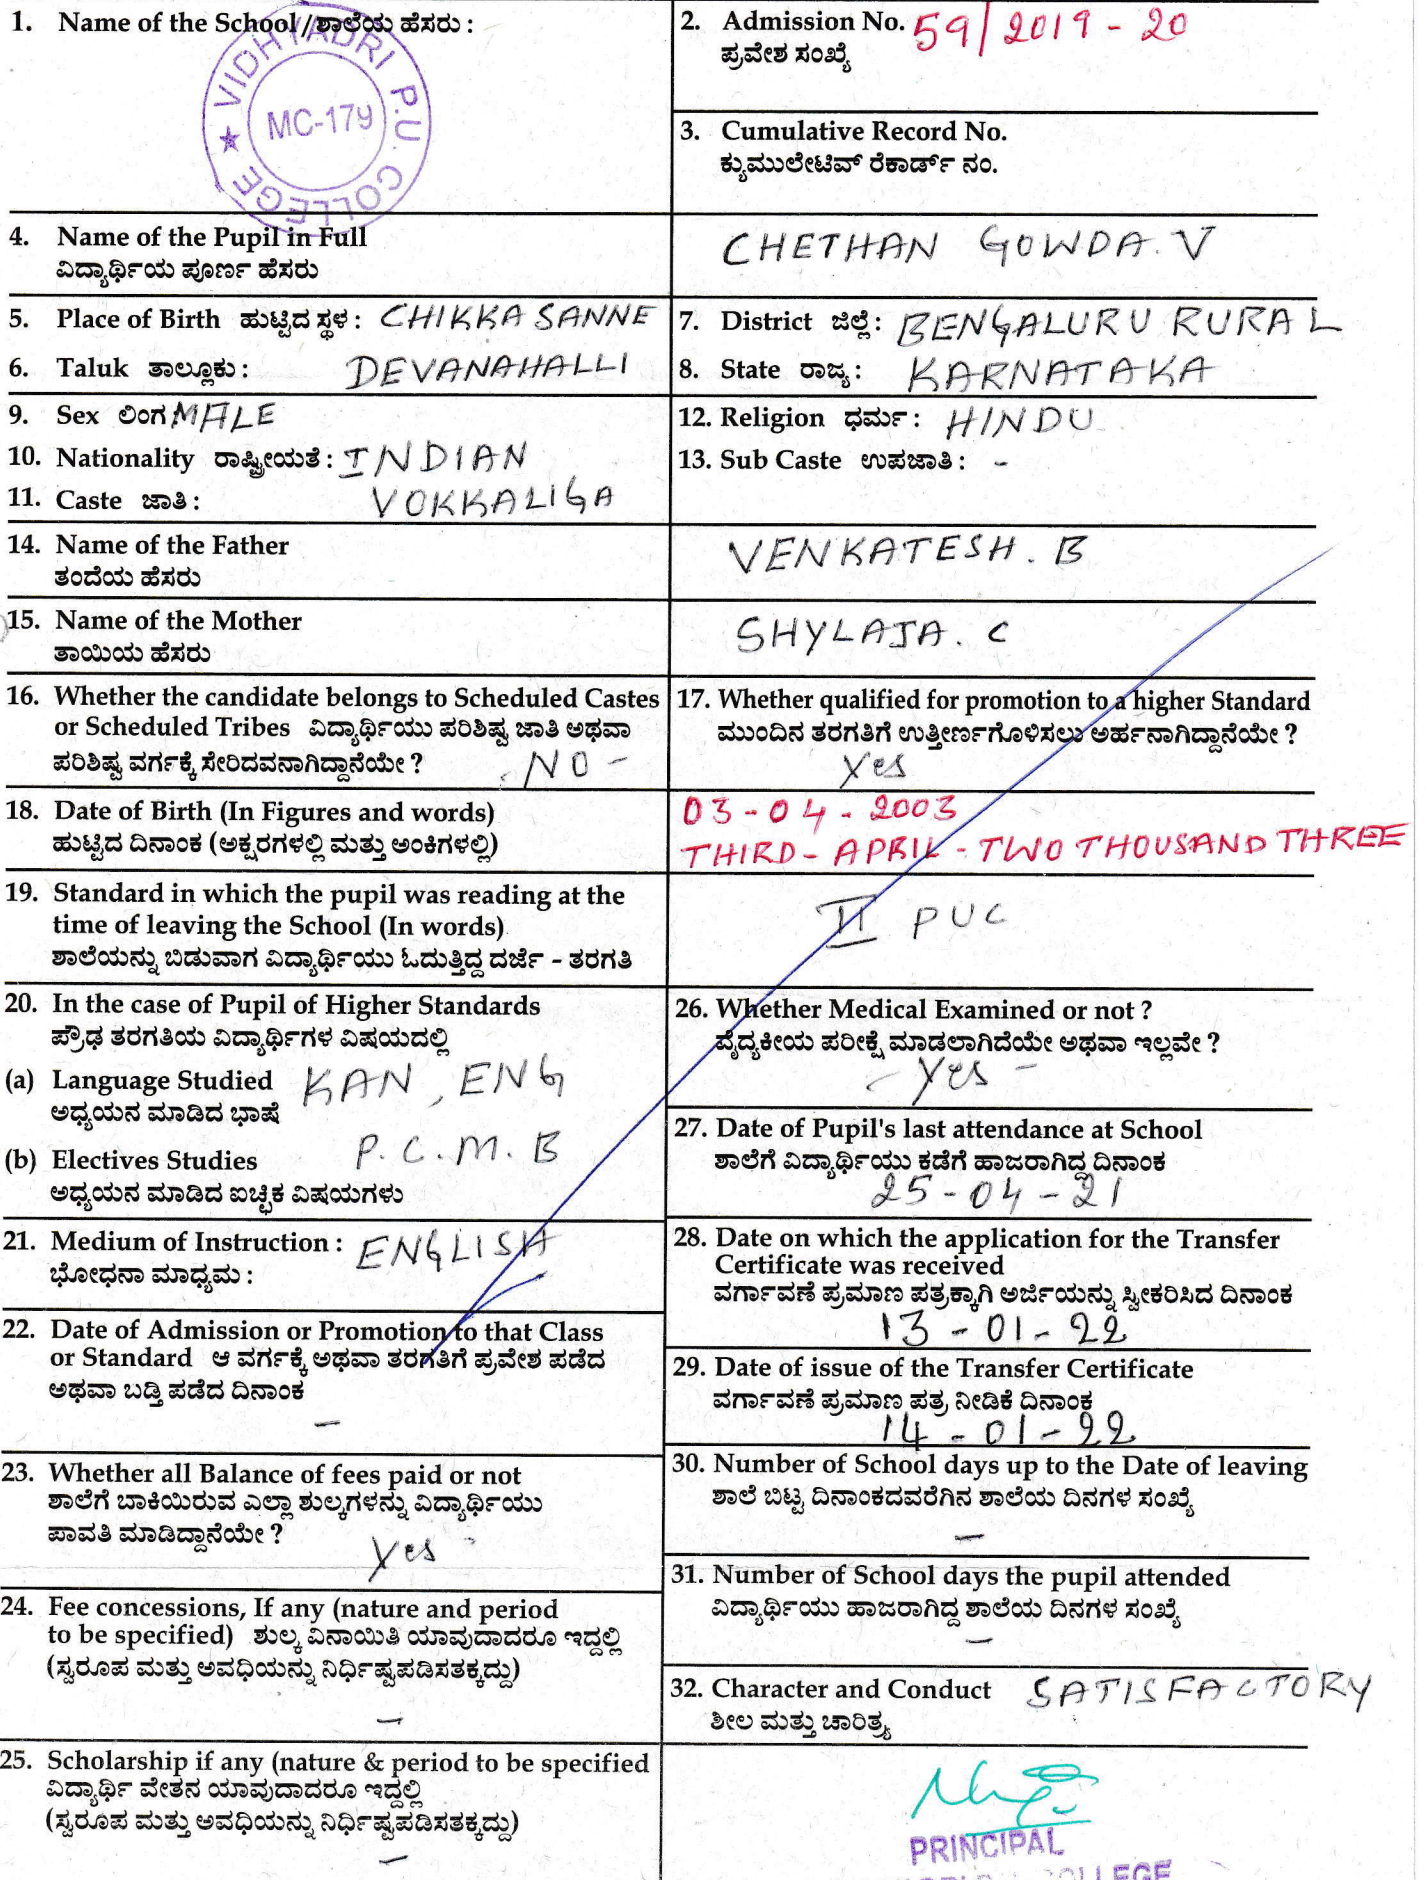 1. Name of the School /ಶಾಲೆಯ ಹೆಸರು :
★ VIDHYADRI P.U. COLLEGE
MC-179
2. Admission No. 59/2019-20
ಪ್ರವೇಶ ಸಂಖ್ಯೆ
3. Cumulative Record No.
ಕ್ಯುಮುಲೇಟಿವ್ ರೆಕಾರ್ಡ್ ನಂ.
4. Name of the Pupil in Full
ವಿದ್ಯಾರ್ಥಿಯ ಪೂರ್ಣ ಹೆಸರು
CHETHAN GOWDA. V
5. Place of Birth ಹುಟ್ಟಿದ ಸ್ಥಳ : CHIKKA SANNE
6. Taluk ತಾಲ್ಲೂಕು : DEVANAHALLI
7. District ಜಿಲ್ಲೆ : BENGALURU RURAL
8. State ರಾಜ್ಯ : KARNATAKA
9. Sex ಲಿಂಗ MALE
10. Nationality ರಾಷ್ಟ್ರೀಯತೆ : INDIAN
11. Caste ಜಾತಿ : VOKKALIGA
12. Religion ಧರ್ಮ : HINDU
13. Sub Caste ಉಪಜಾತಿ : -
14. Name of the Father
ತಂದೆಯ ಹೆಸರು
VENKATESH. B
15. Name of the Mother
ತಾಯಿಯ ಹೆಸರು
SHYLAJA. C
16. Whether the candidate belongs to Scheduled Castes
or Scheduled Tribes ವಿದ್ಯಾರ್ಥಿಯು ಪರಿಶಿಷ್ಟ ಜಾತಿ ಅಥವಾ
ಪರಿಶಿಷ್ಟ ವರ್ಗಕ್ಕೆ ಸೇರಿದವನಾಗಿದ್ದಾನೆಯೇ ? - NO -
17. Whether qualified for promotion to a higher Standard
ಮುಂದಿನ ತರಗತಿಗೆ ಉತ್ತೀರ್ಣಗೊಳಿಸಲು ಅರ್ಹನಾಗಿದ್ದಾನೆಯೇ ?
Yes
18. Date of Birth (In Figures and words)
ಹುಟ್ಟಿದ ದಿನಾಂಕ (ಅಕ್ಷರಗಳಲ್ಲಿ ಮತ್ತು ಅಂಕಿಗಳಲ್ಲಿ)
03-04-2003
THIRD- APRIL - TWO THOUSAND THREE
19. Standard in which the pupil was reading at the
time of leaving the School (In words)
ಶಾಲೆಯನ್ನು ಬಿಡುವಾಗ ವಿದ್ಯಾರ್ಥಿಯು ಓದುತ್ತಿದ್ದ ದರ್ಜೆ - ತರಗತಿ
II PUC
20. In the case of Pupil of Higher Standards
ಪ್ರೌಢ ತರಗತಿಯ ವಿದ್ಯಾರ್ಥಿಗಳ ವಿಷಯದಲ್ಲಿ
(a) Language Studied KAN, ENG
ಅಧ್ಯಯನ ಮಾಡಿದ ಭಾಷೆ
(b) Electives Studies P. C. M. B
ಅಧ್ಯಯನ ಮಾಡಿದ ಐಚ್ಛಿಕ ವಿಷಯಗಳು
21. Medium of Instruction : ENGLISH
ಭೋಧನಾ ಮಾಧ್ಯಮ :
22. Date of Admission or Promotion to that Class
or Standard ಆ ವರ್ಗಕ್ಕೆ ಅಥವಾ ತರಗತಿಗೆ ಪ್ರವೇಶ ಪಡೆದ
ಅಥವಾ ಬಡ್ತಿ ಪಡೆದ ದಿನಾಂಕ
-
23. Whether all Balance of fees paid or not
ಶಾಲೆಗೆ ಬಾಕಿಯಿರುವ ಎಲ್ಲಾ ಶುಲ್ಕಗಳನ್ನು ವಿದ್ಯಾರ್ಥಿಯು
ಪಾವತಿ ಮಾಡಿದ್ದಾನೆಯೇ ?
Yes
24. Fee concessions, If any (nature and period
to be specified) ಶುಲ್ಕ ವಿನಾಯಿತಿ ಯಾವುದಾದರೂ ಇದ್ದಲ್ಲಿ
(ಸ್ವರೂಪ ಮತ್ತು ಅವಧಿಯನ್ನು ನಿರ್ಧಿಷ್ಟಪಡಿಸತಕ್ಕದ್ದು)
-
25. Scholarship if any (nature & period to be specified
ವಿದ್ಯಾರ್ಥಿ ವೇತನ ಯಾವುದಾದರೂ ಇದ್ದಲ್ಲಿ
(ಸ್ವರೂಪ ಮತ್ತು ಅವಧಿಯನ್ನು ನಿರ್ಧಿಷ್ಟಪಡಿಸತಕ್ಕದ್ದು)
-
26. Whether Medical Examined or not ?
ವೈದ್ಯಕೀಯ ಪರೀಕ್ಷೆ ಮಾಡಲಾಗಿದೆಯೇ ಅಥವಾ ಇಲ್ಲವೇ ?
- Yes -
27. Date of Pupil's last attendance at School
ಶಾಲೆಗೆ ವಿದ್ಯಾರ್ಥಿಯು ಕಡೆಗೆ ಹಾಜರಾಗಿದ್ದ ದಿನಾಂಕ
25-04-21
28. Date on which the application for the Transfer
Certificate was received
ವರ್ಗಾವಣೆ ಪ್ರಮಾಣ ಪತ್ರಕ್ಕಾಗಿ ಅರ್ಜಿಯನ್ನು ಸ್ವೀಕರಿಸಿದ ದಿನಾಂಕ
13-01-22
29. Date of issue of the Transfer Certificate
ವರ್ಗಾವಣೆ ಪ್ರಮಾಣ ಪತ್ರ ನೀಡಿಕೆ ದಿನಾಂಕ
14-01-22
30. Number of School days up to the Date of leaving
ಶಾಲೆ ಬಿಟ್ಟ ದಿನಾಂಕದವರೆಗಿನ ಶಾಲೆಯ ದಿನಗಳ ಸಂಖ್ಯೆ
-
31. Number of School days the pupil attended
ವಿದ್ಯಾರ್ಥಿಯು ಹಾಜರಾಗಿದ್ದ ಶಾಲೆಯ ದಿನಗಳ ಸಂಖ್ಯೆ
-
32. Character and Conduct SATISFACTORY
ಶೀಲ ಮತ್ತು ಚಾರಿತ್ರ್ಯ
PRINCIPAL
COLLEGE